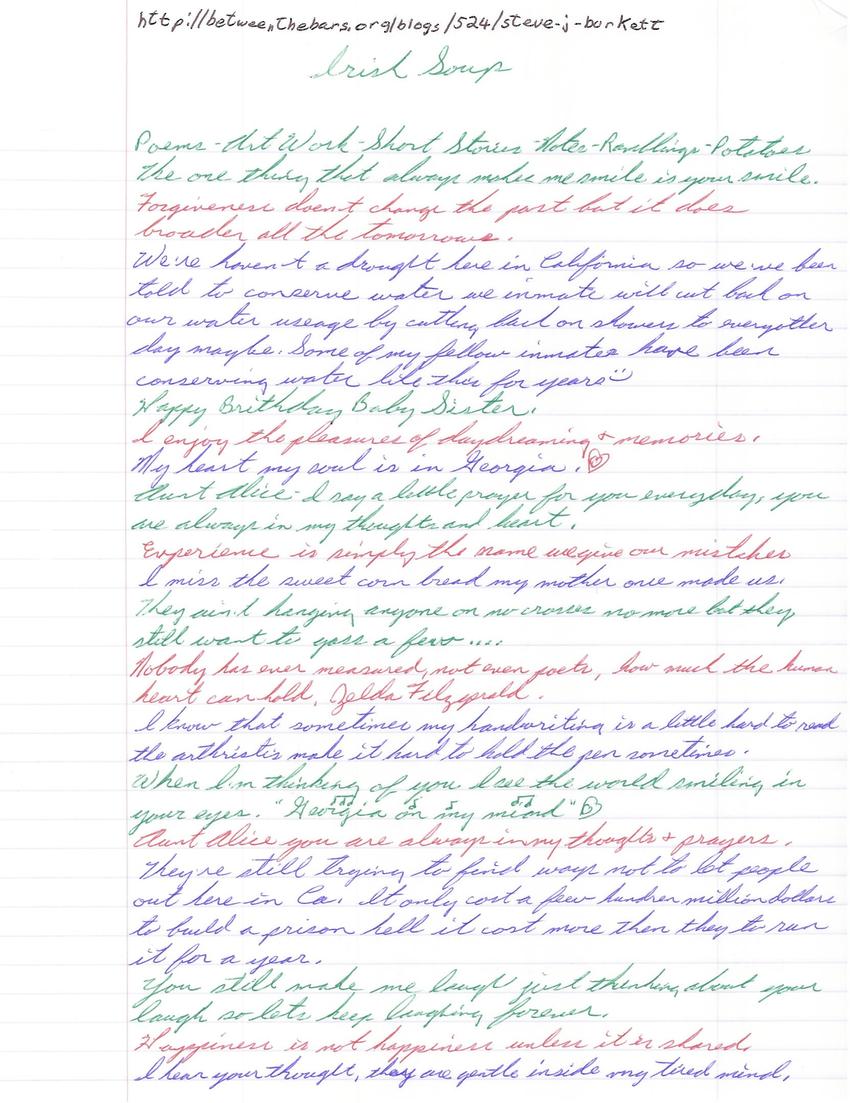 http://betweenthebars.org/blogs/524/steve-j-burkett
Irish Soup
Poems-Art Work-Short Stories-Notes-Ramblings-Potatoes
The one thing that always makes me smile is your smile.
Forgiveness doesn't change the past but it does
broaden all the tomorrows.
We're haven't a drought here in California so we've been
told to conserve water we inmate will cut back on
our water useage by cutting back on showers to everyother
day maybe. Some of my fellow inmates have been
conserving water like this for years
Happy Brithday Baby Sister.
I enjoy the pleasures of daydreaming + memories.
My heart my soul is in Georgia.
Aunt Alice-I say a little prayer for you everyday, you
are always in my thoughts and heart.
Experience is simply the name we give our mistakes
I miss the sweet corn bread my mother once made us.
They ain't hanging anyone on no crosses no more but they
still want to gass a few....
Nobody has ever measured, not even poets, how much the human
heart can hold. Zelda Fitzgerald.
I know that sometimes my handwriting is a little hard to read
the arthristis make it hard to hold the pen sometimes.
When I'm thinking of you I see the world smiling in
your eyes. "Georgia on my miond"
Aunt Alice you are always in my thoughts + prayers.
They're still trying to find ways not to let people
out here in Ca. It only cost a few hundren million dollars
to build a prison hell it cost more then they to run
it for a year.
You still make me laugh just thinking about your
laugh so lets keep laughing forever.
Happiness is not happiness unless it is shared.
I hear your thought, they are gentle inside my tired mind.